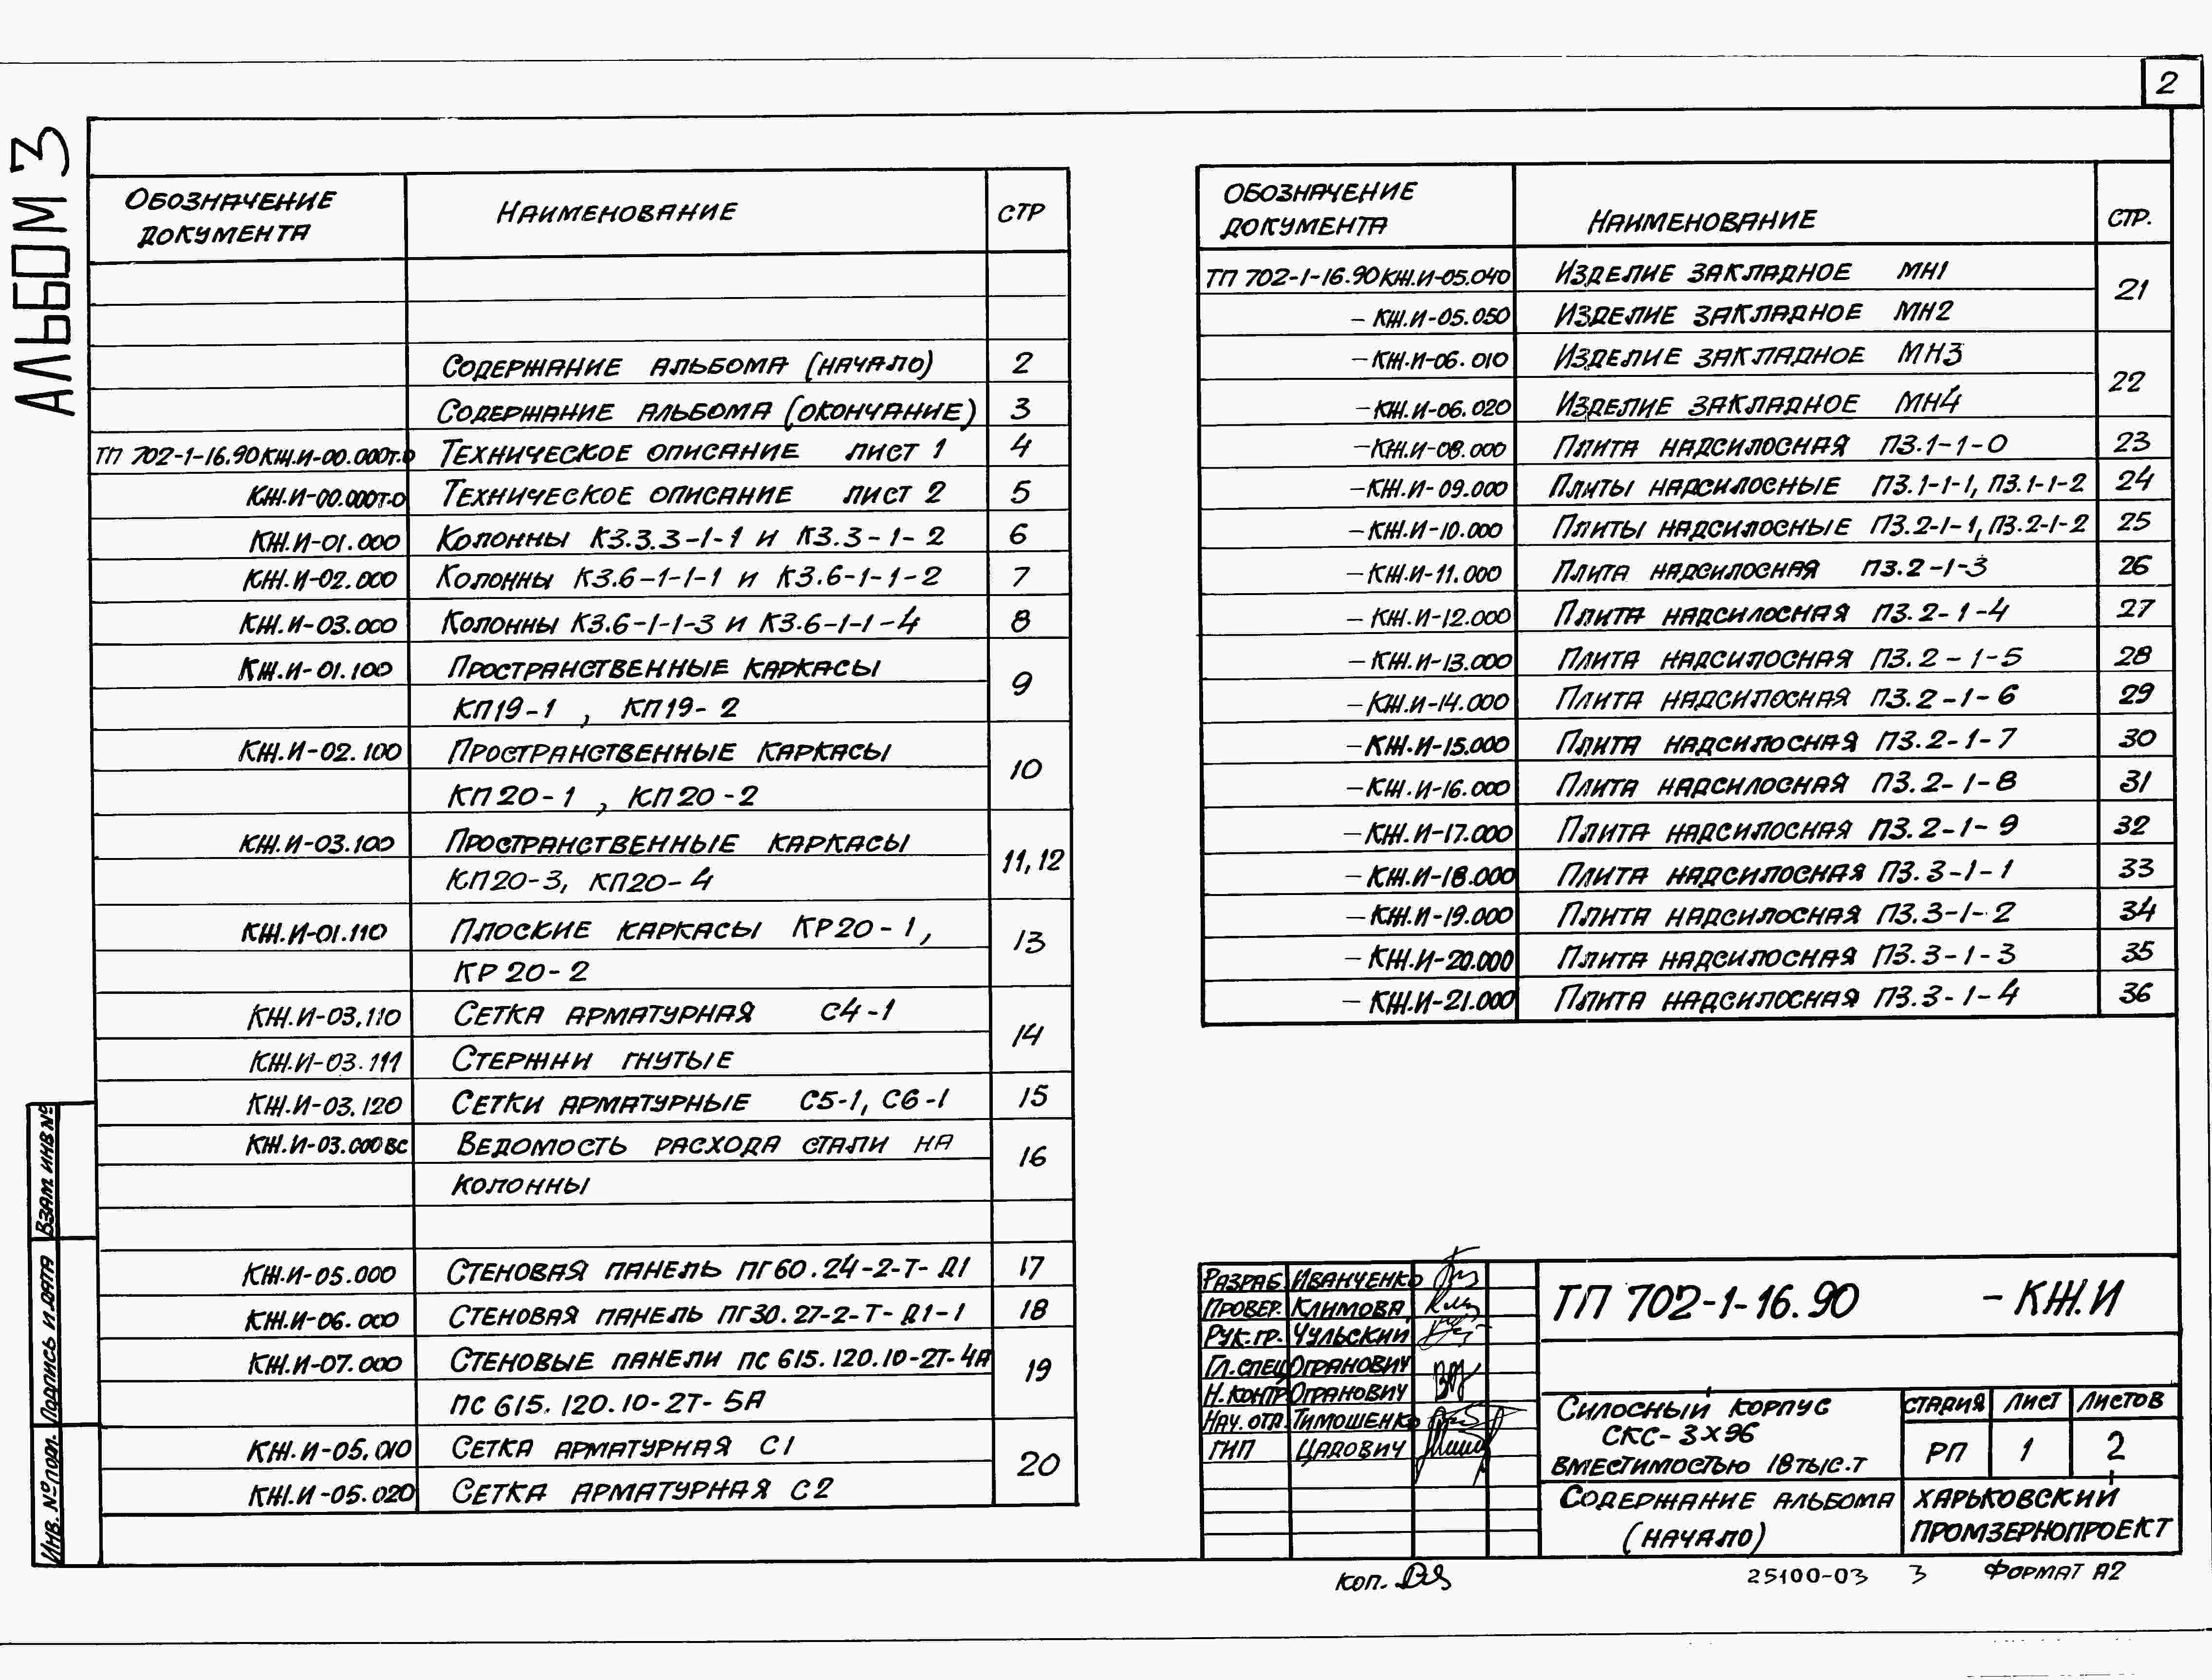 2
АЛЬБОМ 3
ОБОЗНАЧЕНИЕ ДОКУМЕНТА НАИМЕНОВАНИЕ СТР
СОДЕРЖАНИЕ АЛЬБОМА (НАЧАЛО) 2
СОДЕРЖАНИЕ АЛЬБОМА (ОКОНЧАНИЕ) 3
ТП 702-1-16.90КЖ.И-00.000Т.О ТЕХНИЧЕСКОЕ ОПИСАНИЕ ЛИСТ 1 4
КЖ.И-00.000Т.О ТЕХНИЧЕСКОЕ ОПИСАНИЕ ЛИСТ 2 5
КЖ.И-01.000 КОЛОННЫ К3.3.3-1-1 И К3.3-1-2 6
КЖ.И-02.000 КОЛОННЫ К3.6-1-1-1 И К3.6-1-1-2 7
КЖ.И-03.000 КОЛОННЫ К3.6-1-1-3 И К3.6-1-1-4 8
КЖ.И-01.100 ПРОСТРАНСТВЕННЫЕ КАРКАСЫ
КП19-1, КП19-2 9
КЖ.И-02.100 ПРОСТРАНСТВЕННЫЕ КАРКАСЫ
КП20-1, КП20-2 10
КЖ.И-03.100 ПРОСТРАНСТВЕННЫЕ КАРКАСЫ
КП20-3, КП20-4 11,12
КЖ.И-01.110 ПЛОСКИЕ КАРКАСЫ КР20-1,
КР20-2 13
КЖ.И-03.110 СЕТКА АРМАТУРНАЯ С4-1
14
КЖ.И-03.111 СТЕРЖНИ ГНУТЫЕ
КЖ.И-03.120 СЕТКИ АРМАТУРНЫЕ С5-1, С6-1 15
КЖ.И-03.000ВС ВЕДОМОСТЬ РАСХОДА СТАЛИ НА
КОЛОННЫ 16
КЖ.И-05.000 СТЕНОВАЯ ПАНЕЛЬ ПГ60.24-2-Т-Д1 17
КЖ.И-06.000 СТЕНОВАЯ ПАНЕЛЬ ПГ30.27-2-Т-Д1-1 18
КЖ.И-07.000 СТЕНОВЫЕ ПАНЕЛИ ПС 615.120.10-2Т-4А
ПС 615.120.10-2Т-5А 19
КЖ.И-05.010 СЕТКА АРМАТУРНАЯ С1
20
КЖ.И-05.020 СЕТКА АРМАТУРНАЯ С2
ОБОЗНАЧЕНИЕ ДОКУМЕНТА НАИМЕНОВАНИЕ СТР.
ТП 702-1-16.90КЖ.И-05.040 ИЗДЕЛИЕ ЗАКЛАДНОЕ МН1
21
-КЖ.И-05.050 ИЗДЕЛИЕ ЗАКЛАДНОЕ МН2
-КЖ.И-06.010 ИЗДЕЛИЕ ЗАКЛАДНОЕ МН3
22
-КЖ.И-06.020 ИЗДЕЛИЕ ЗАКЛАДНОЕ МН4
-КЖ.И-08.000 ПЛИТА НАДСИЛОСНАЯ П3.1-1-0 23
-КЖ.И-09.000 ПЛИТЫ НАДСИЛОСНЫЕ П3.1-1-1, П3.1-1-2 24
-КЖ.И-10.000 ПЛИТЫ НАДСИЛОСНЫЕ П3.2-1-1, П3.2-1-2 25
-КЖ.И-11.000 ПЛИТА НАДСИЛОСНАЯ П3.2-1-3 26
-КЖ.И-12.000 ПЛИТА НАДСИЛОСНАЯ П3.2-1-4 27
-КЖ.И-13.000 ПЛИТА НАДСИЛОСНАЯ П3.2-1-5 28
-КЖ.И-14.000 ПЛИТА НАДСИЛОСНАЯ П3.2-1-6 29
-КЖ.И-15.000 ПЛИТА НАДСИЛОСНАЯ П3.2-1-7 30
-КЖ.И-16.000 ПЛИТА НАДСИЛОСНАЯ П3.2-1-8 31
-КЖ.И-17.000 ПЛИТА НАДСИЛОСНАЯ П3.2-1-9 32
-КЖ.И-18.000 ПЛИТА НАДСИЛОСНАЯ П3.3-1-1 33
-КЖ.И-19.000 ПЛИТА НАДСИЛОСНАЯ П3.3-1-2 34
-КЖ.И-20.000 ПЛИТА НАДСИЛОСНАЯ П3.3-1-3 35
-КЖ.И-21.000 ПЛИТА НАДСИЛОСНАЯ П3.3-1-4 36
ВЗАМ. ИНВ №
ПОДПИСЬ И ДАТА
ИНВ. № ПОДП.
РАЗРАБ. ИВАНЧЕНКО
ПРОВЕР. КЛИМОВА
РУК.ГР. ЧУЛЬСКИЙ
ГЛ.СПЕЦ ОГРАНОВИЧ
Н.КОНТР ОГРАНОВИЧ
НАЧ.ОТД. ТИМОШЕНКО
ГИП ЦАДОВИЧ
ТП 702-1-16.90 -КЖ.И
СИЛОСНЫЙ КОРПУС
СКС-3×96
ВМЕСТИМОСТЬЮ 18 ТЫС.Т
СТАДИЯ ЛИСТ ЛИСТОВ
РП 1 2
СОДЕРЖАНИЕ АЛЬБОМА
(НАЧАЛО)
ХАРЬКОВСКИЙ
ПРОМЗЕРНОПРОЕКТ
КОП.
25100-03 3 ФОРМАТ А2